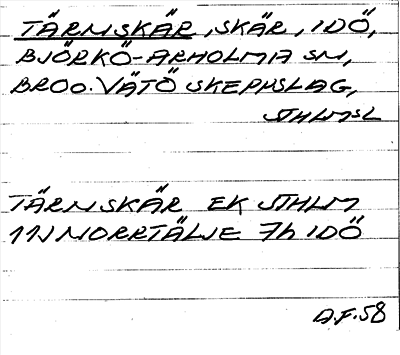 TÄRNSKÄR, SKÄR, IDÖ,
BJÖRKÖ-ARHOLMA SN,
BRO O. VÄTÖ SKEPPSLAG,
STHLMSL
TÄRNSKÄR EK STHLM
11J NORRTÄLJE 7h IDÖ
A.F.58